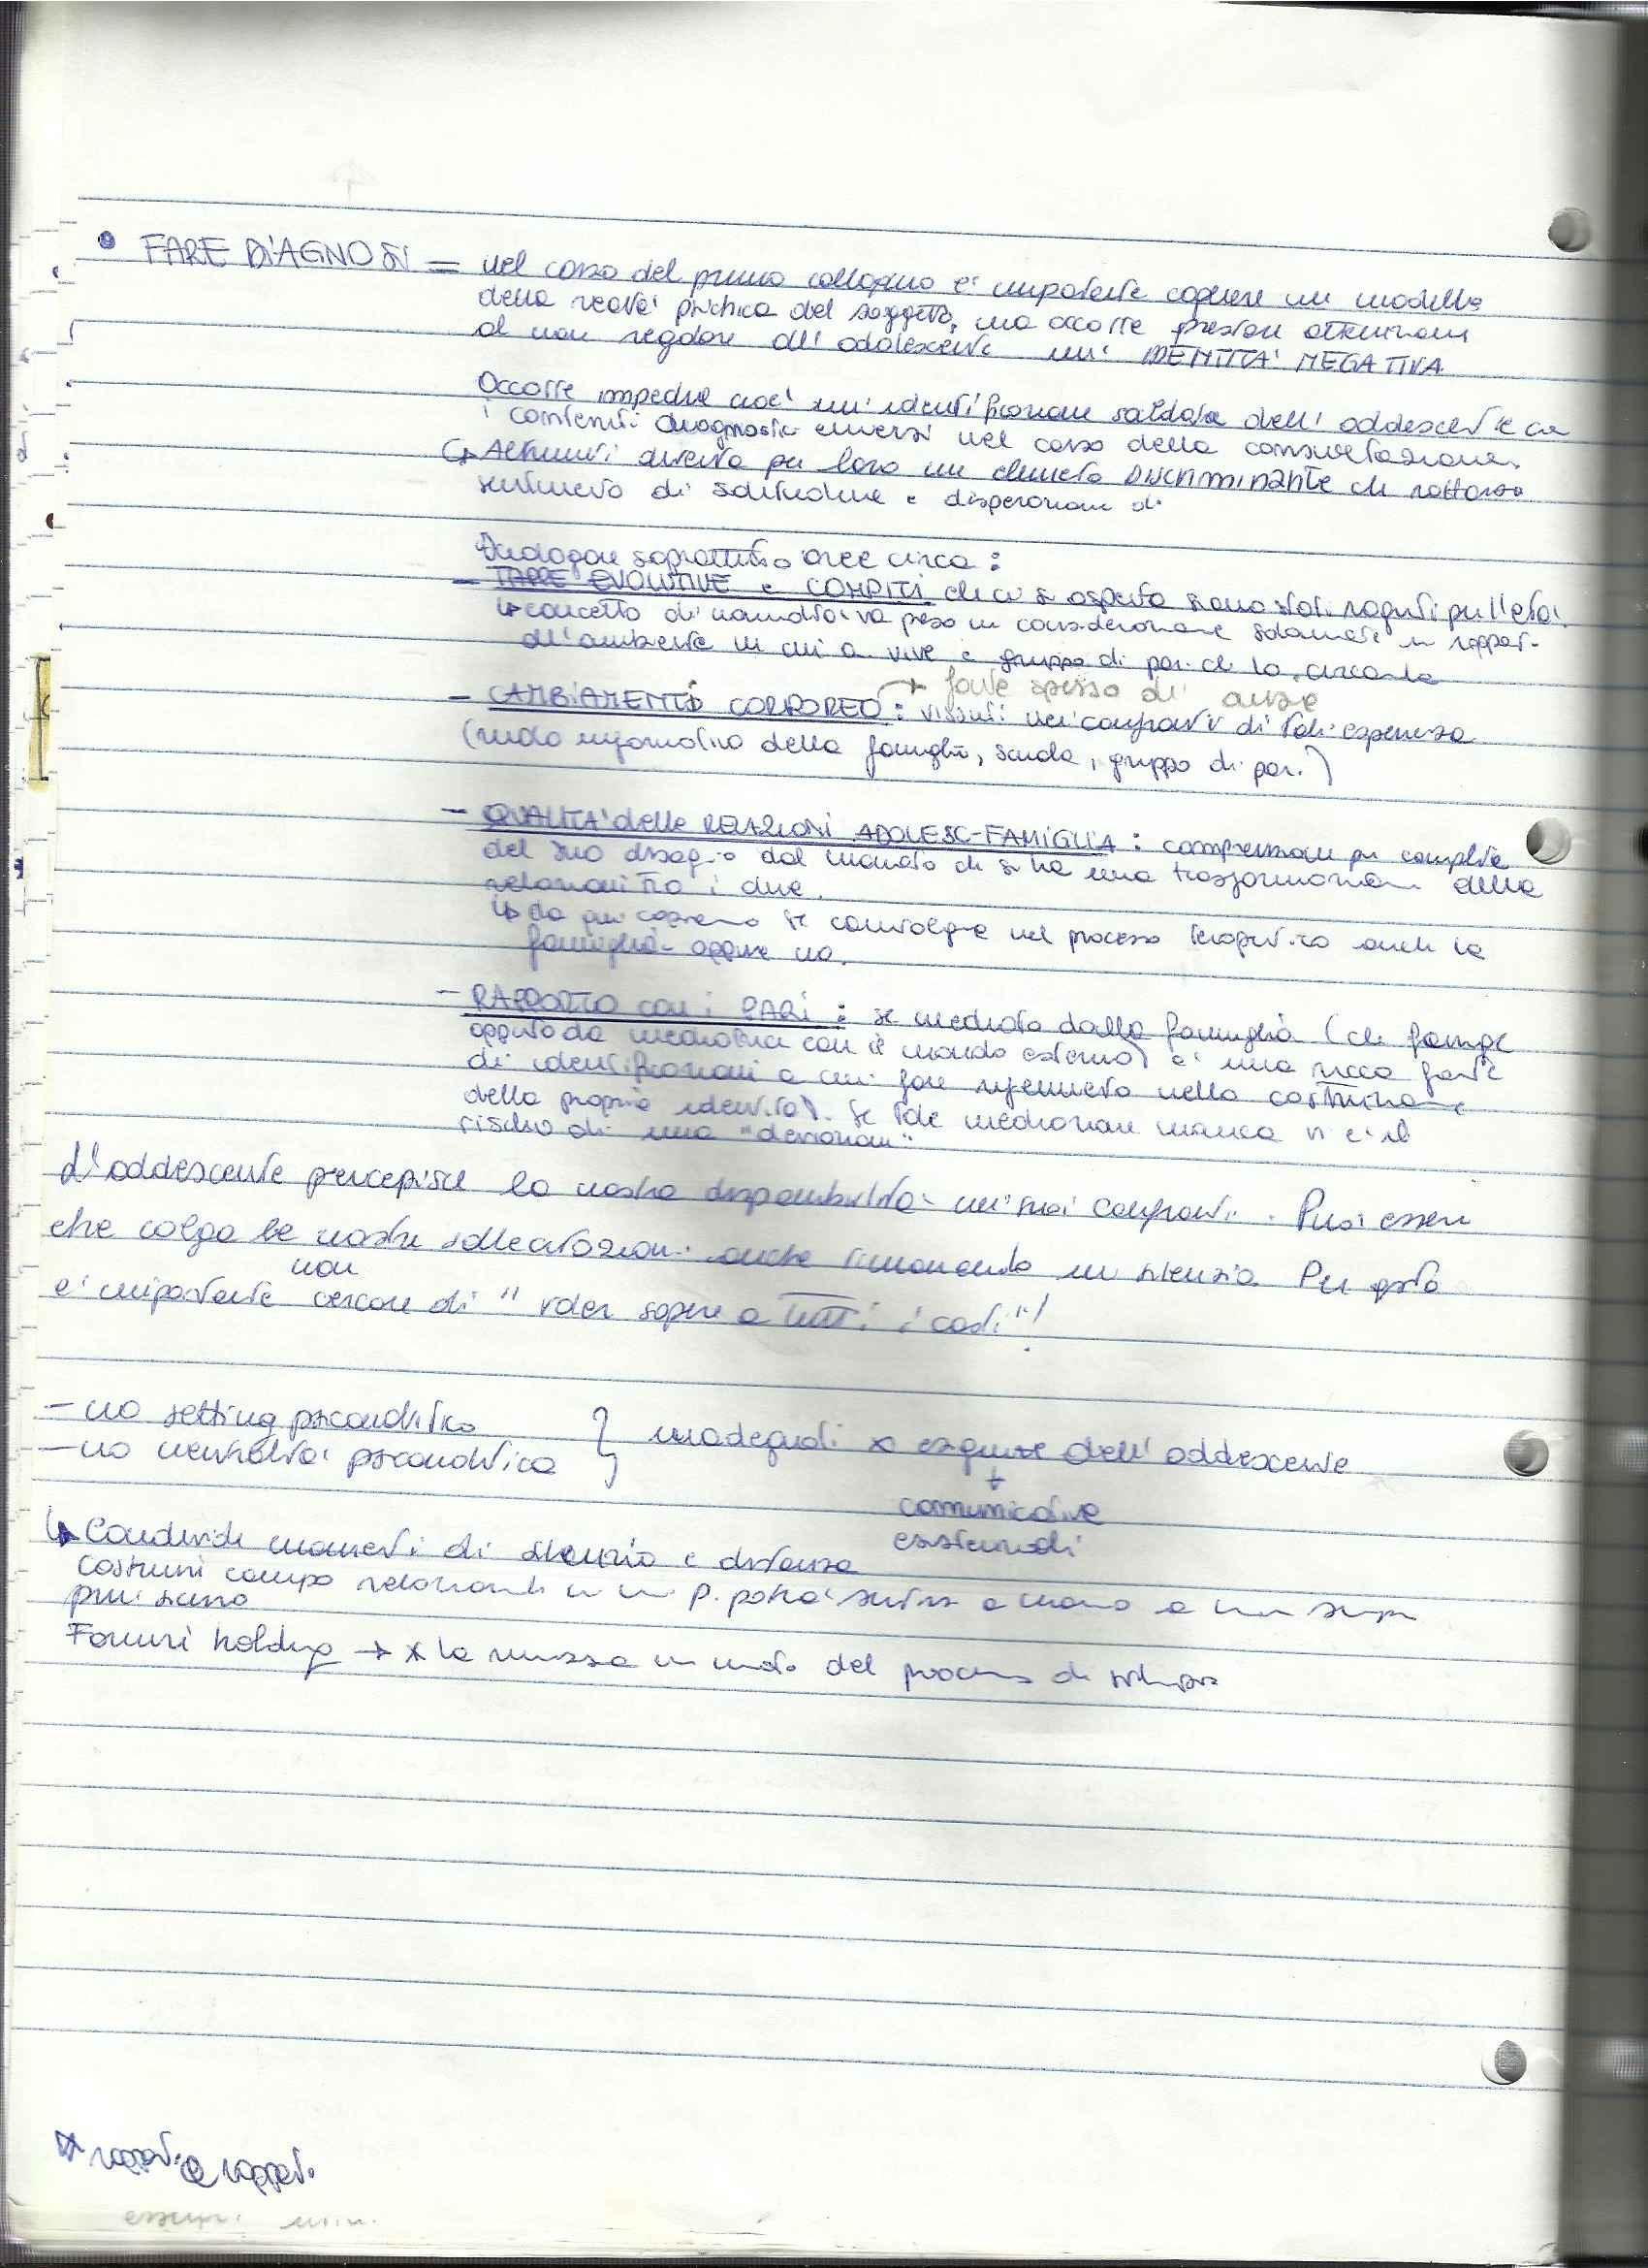 • FARE DIAGNOSI = nel corso del primo colloquio e' importante cogliere un modello
della realta' psichica del soggetto, ma occorre prestare attenzione
al non regalare all'adolescente un' IDENTITA' NEGATIVA
Occorre impedire cioe' un'identificazione saldata dell'adolescente con
i contenuti diagnostici emersi nel corso della consultazione.
↳ Altrimenti diventa per loro un elemento DISCRIMINANTE che rafforza
sentimento di solitudine e disperazione
Indagare soprattutto aree circa:
- TAPPE EVOLUTIVE e COMPITI che ci si aspetta siano stati per l'eta'
↳ concetto di va preso in considerazione solamente in rappor-
all'ambiente in cui vive e gruppo di pari che lo circonda
- CAMBIAMENTI CORPOREO: vissuti nei confronti di tale esperienza
→ fonte spesso di ansie
(ruolo informativo della famiglia, scuola, gruppo di pari)
- QUALITA' delle RELAZIONI ADOLESC-FAMIGLIA: comprensione piu' completa
del suo disagio dal momento che si ha una trasformazione della
relazioni tra i due.
↳ da qui capiremo se coinvolgere nel processo terapeutico anche la
famiglia oppure no.
- RAPPORTO con i PARI: se mediato dalla famiglia (che funge
appunto da mediatrice con il mondo esterno) e' una ricca fonte
di identificazioni a cui fare riferimento nella costruzione
della propria identita'. Se tale mediazione manca vi e' il
rischio di una "deviazione"
L'adolescente percepisce la nostra disponibilita' nei suoi confronti. Puo' essere
che colga le nostre sollecitazioni anche rimanendo in silenzio. Per questo
e' importante non cercare di "voler sapere a tutti i costi"!
- no setting psicoanalitico
- no neutralita' psicoanalitica } inadeguati x esigenze dell'adolescente
↓
comunicative
esistenziali
↳ Condividi momenti di silenzio e distanza
Costruirei campo relazionale in cui p. potra' sentirsi a mano a mano sempre
piu' sicuro
Fornirei holding → x la messa in moto del processo di sviluppo